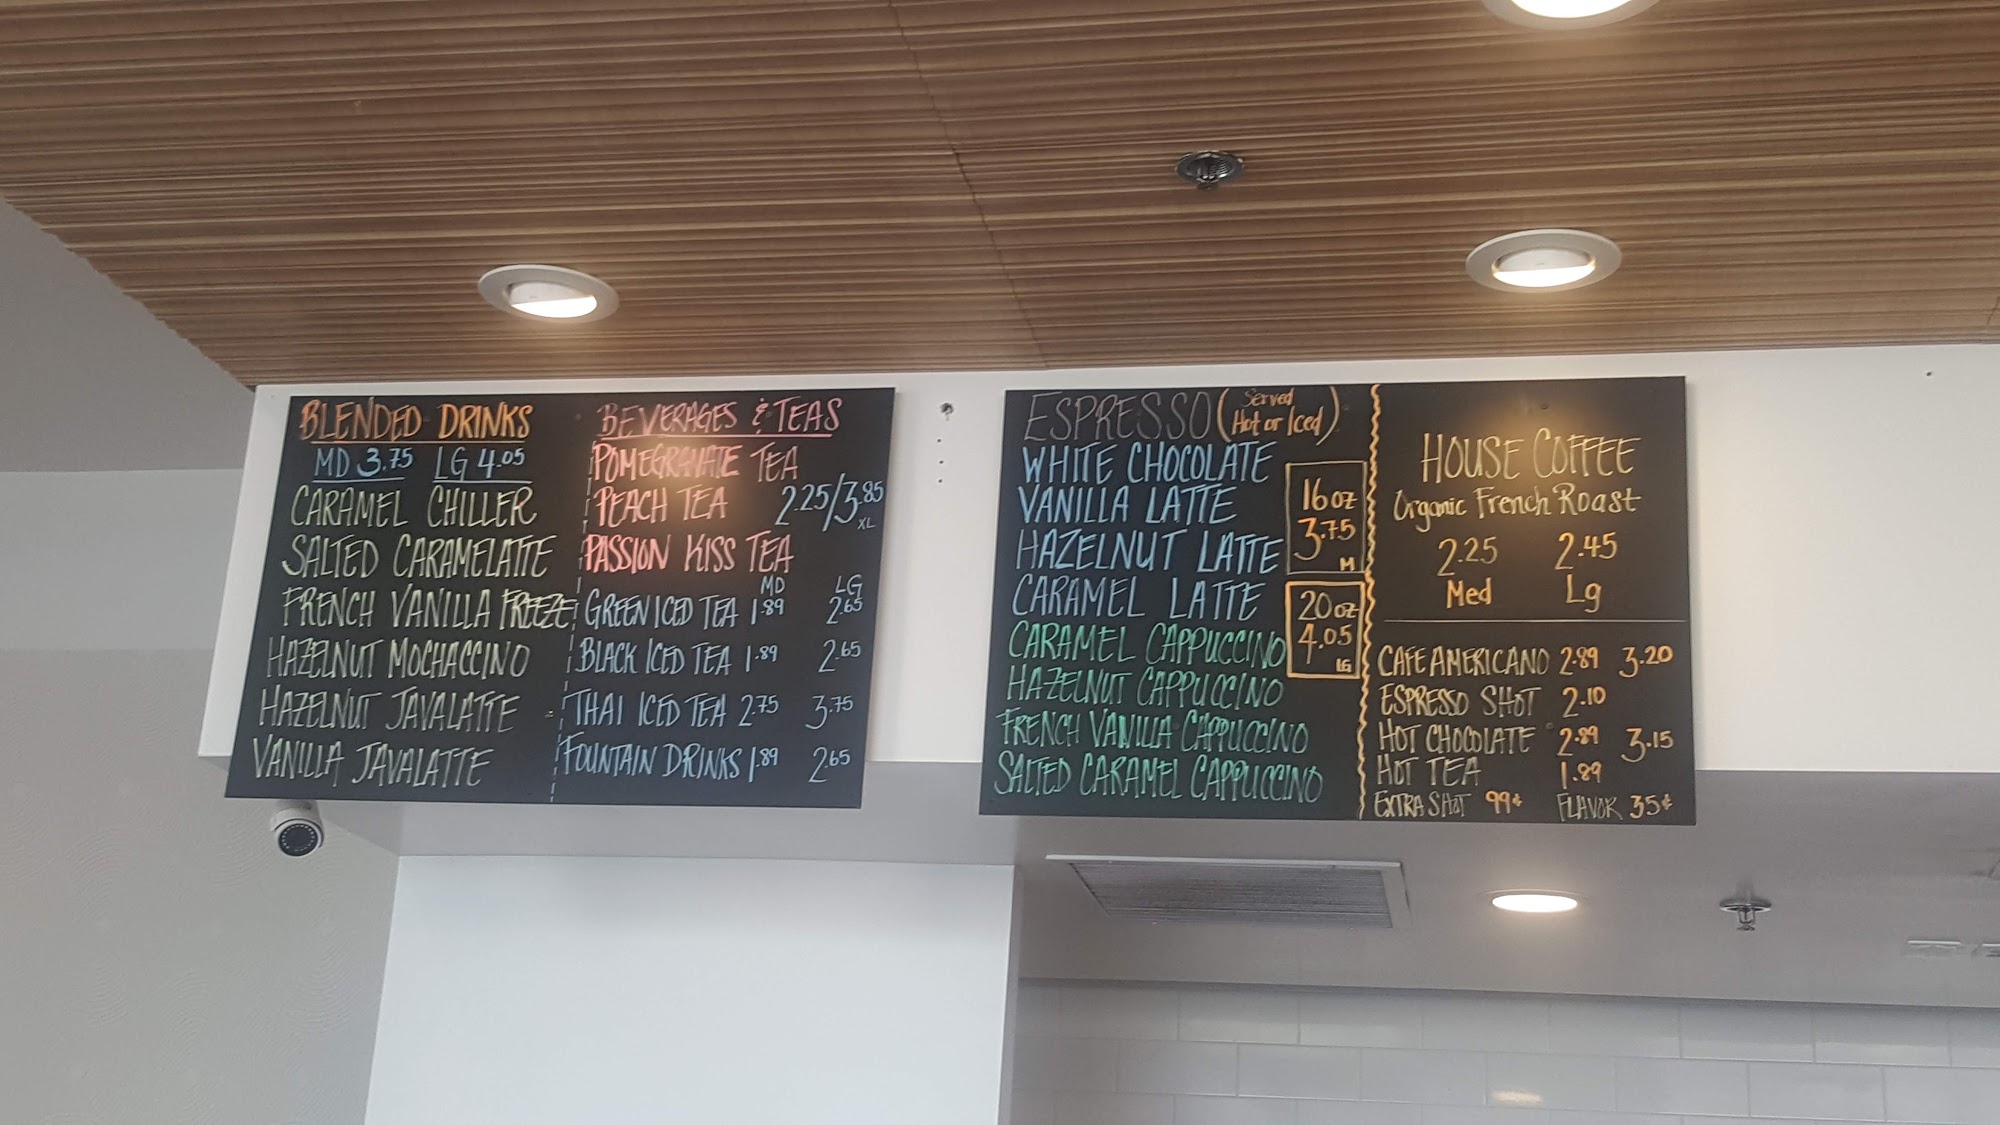 BLENDED DRINKS
MD 3.75 LG 4.05
CARAMEL CHILLER
SALTED CARAMELATTE
FRENCH VANILLA FREEZE
HAZELNUT MOCHACCINO
HAZELNUT JAVALATTE
VANILLA JAVALATTE
BEVERAGES & TEAS
POMEGRANATE TEA
PEACH TEA 2.25/3.85
XL
PASSION KISS TEA
MD LG
GREEN ICED TEA 1.89 2.65
BLACK ICED TEA 1.89 2.65
THAI ICED TEA 2.75 3.75
FOUNTAIN DRINKS 1.89 2.65
ESPRESSO (Served Hot or Iced)
WHITE CHOCOLATE
VANILLA LATTE
HAZELNUT LATTE
CARAMEL LATTE
CARAMEL CAPPUCCINO
HAZELNUT CAPPUCCINO
FRENCH VANILLA CAPPUCCINO
SALTED CARAMEL CAPPUCCINO
16oz
3.75
M
20oz
4.05
LG
HOUSE COFFEE
Organic French Roast
2.25 2.45
Med Lg
CAFE AMERICANO 2.89 3.20
ESPRESSO SHOT 2.10
HOT CHOCOLATE 2.89 3.15
HOT TEA 1.89
EXTRA SHOT 99¢ FLAVOR 35¢